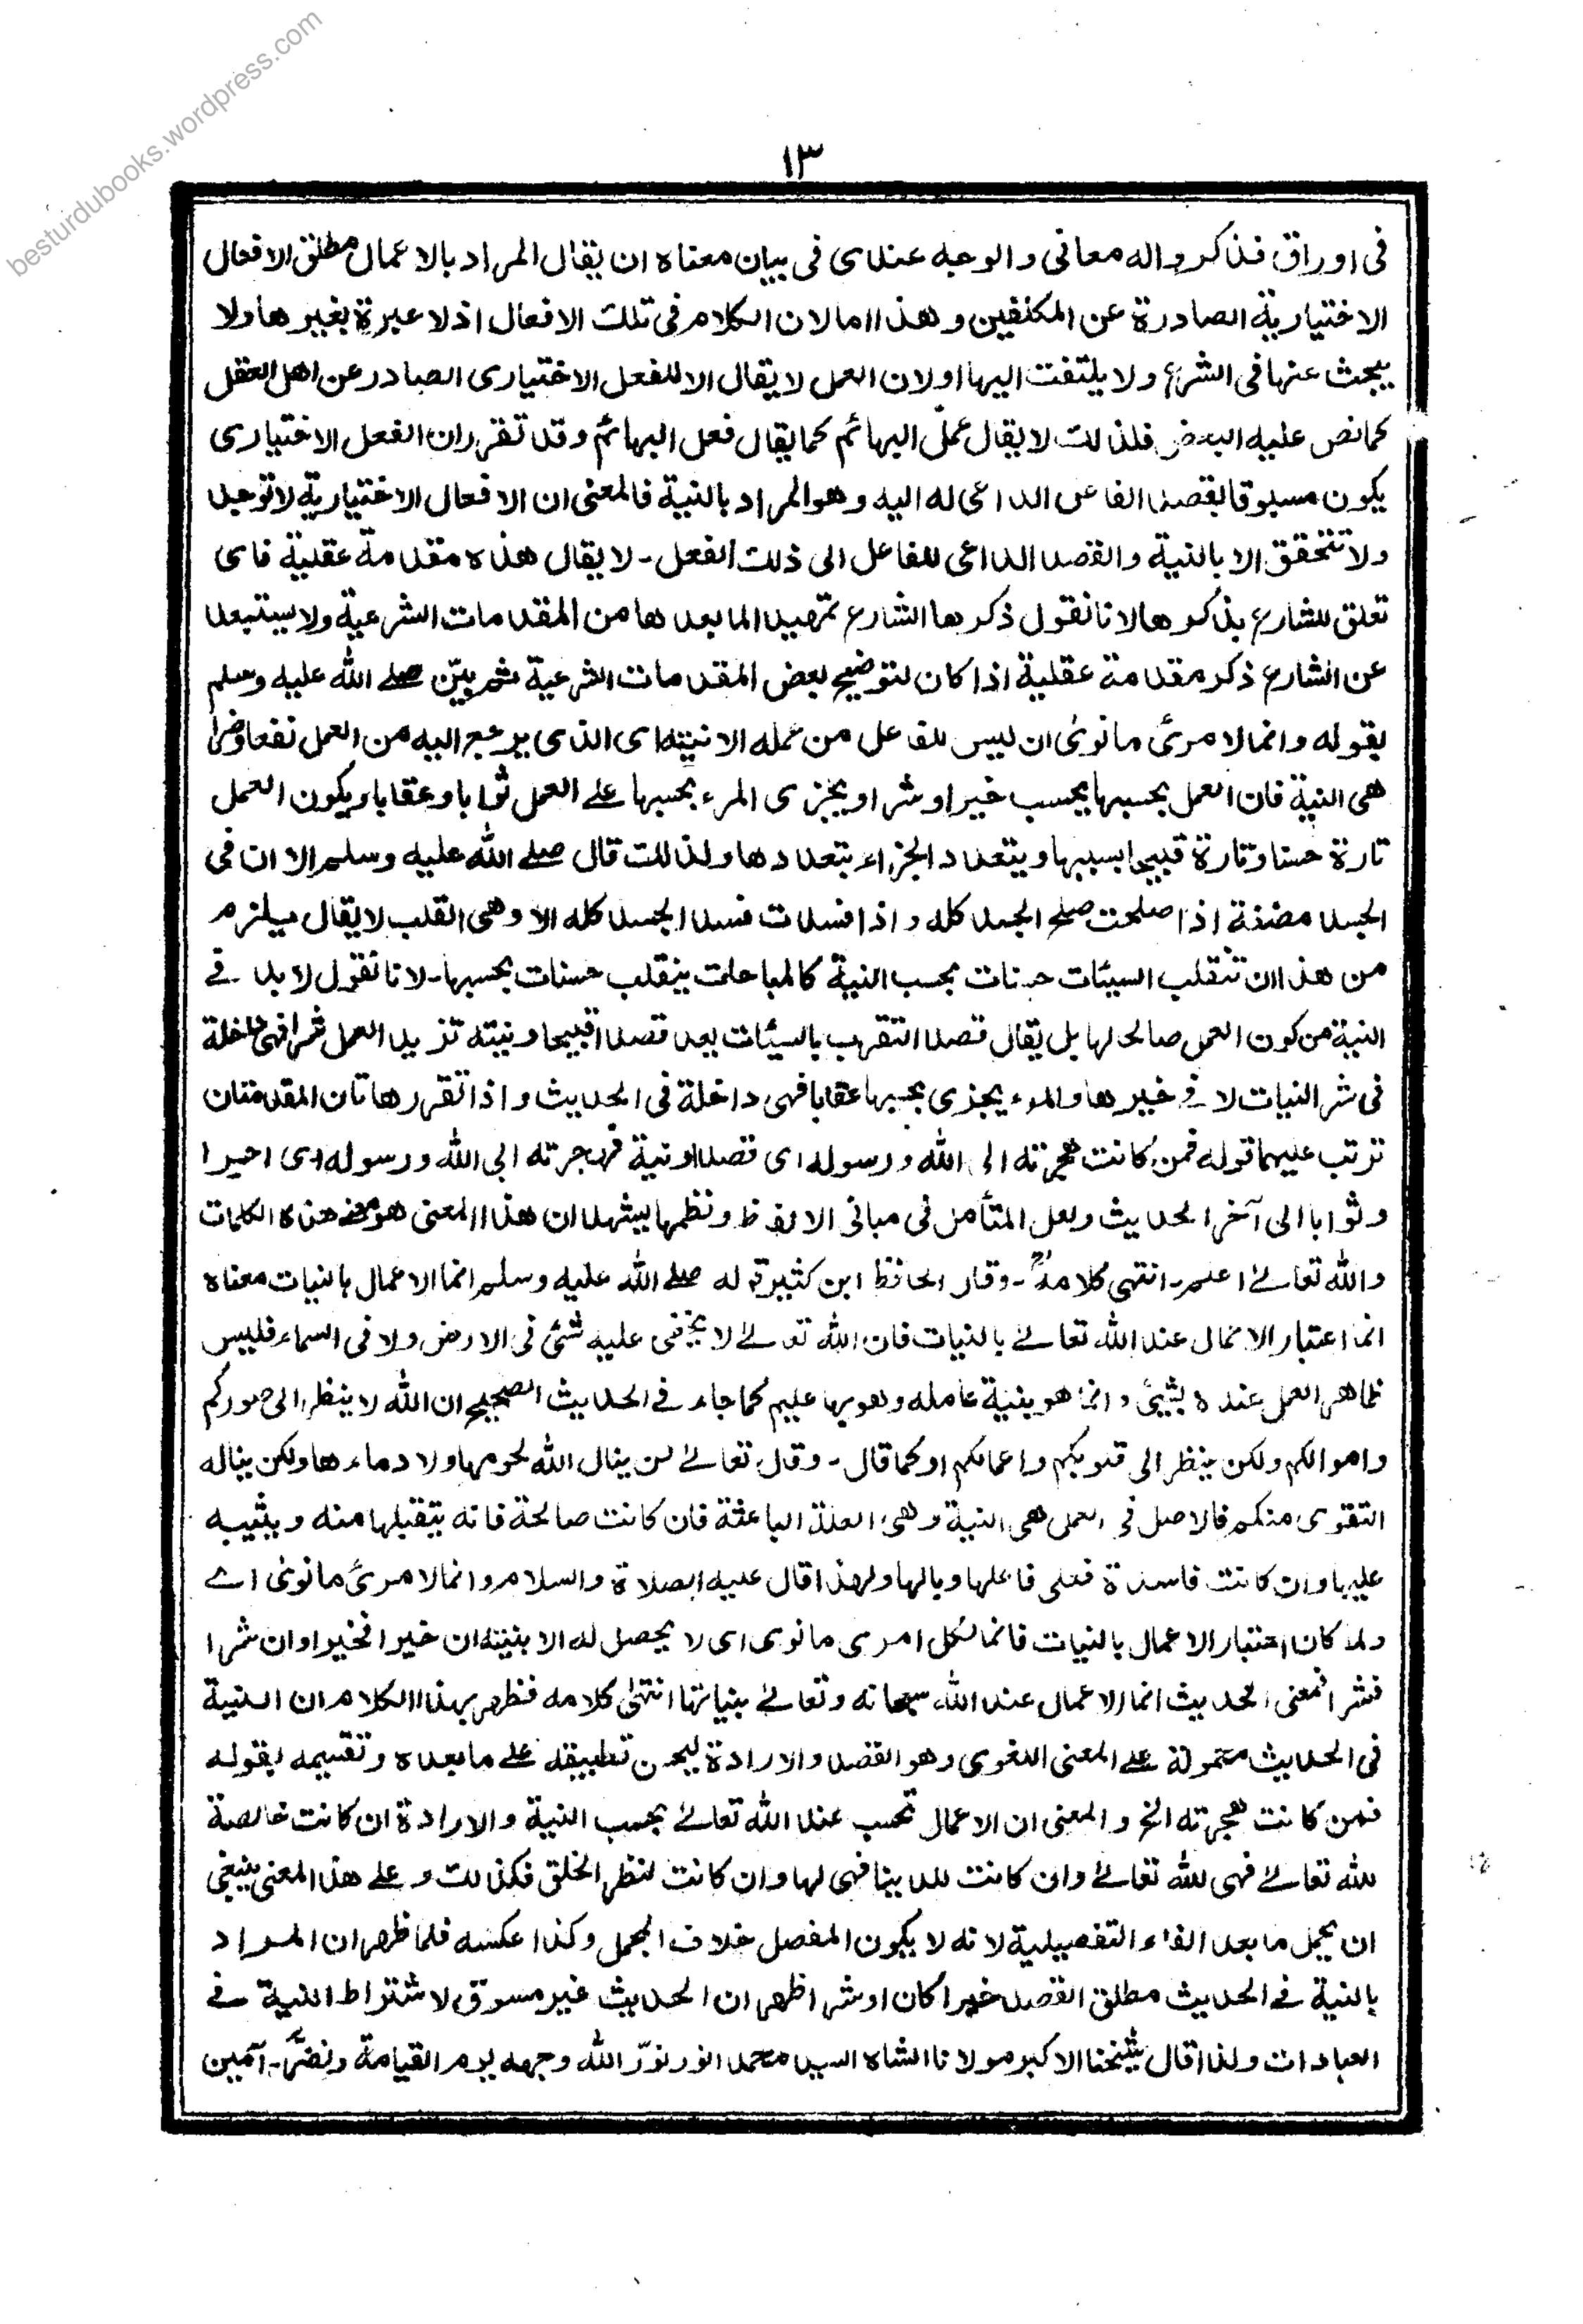 besturdubooks.wordpress.com
١٣
فى اوراق فذكروا له معانى والوجه عندى فى بيان معناه ان يقال المراد بالاعمال مطلق الافعال
الاختيارية الصادرة عن المكلفين وهذا اما لان الكلام فى تلك الافعال اذ لا عبرة بغيرها ولا
يبحث عنها فى الشرع ولا يلتفت اليها او لان العمل لا يقال الا للفعل الاختيارى الصادر عن اهل العقل
كما نص عليه البعض فلذلك لا يقال عمل البهائم كما يقال فعل البهائم وقد تقرر ان الفعل الاختيارى
يكون مسبوقا بقصد الفاعل الداعى له اليه وهو المراد بالنية فالمعنى ان الافعال الاختيارية لا توجد
ولا تتحقق الا بالنية والقصد الداعى للفاعل الى ذلك الفعل - لا يقال هذه مقدمة عقلية فاى
تعلق للشارع بذكرها لانا نقول ذكرها الشارع تمهيدا لما بعدها من المقدمات الشرعية ولا يستبعد
عن الشارع ذكر مقدمة عقلية اذا كان لتوضيح بعض المقدمات الشرعية ثم بيّن صلے الله عليه وسلم
بقوله وانما لامرئ ما نوىٰ ان ليس للفاعل من عمله الا نيته اى الذى يرجع اليه من العمل نفعا وضرا
هى النية فان العمل بحسبها يحسب خيرا وشرا ويجزى المرء بحسبها علے العمل ثوابا وعقابا ويكون العمل
تارة حسنا وتارة قبيحا بسببها ويتعدد الجزاء بتعددها ولذلك قال صلے الله عليه وسلم الا ان فى
الجسد مضغة اذا صلحت صلح الجسد كله واذا فسدت فسد الجسد كله الا وهى القلب لا يقال يلزم
من هذا ان تنقلب السيئات حسنات بحسب النية كالمباحات ينقلب حسنات بحسبها - لانا نقول لا بد فے
النية من كون العمل صالحا لها بل يقال قصد التقرب بالسيئات يعد قصدا قبيحا ونيته تزيد العمل شرا فهى داخلة
فى شر النيات لا فى خيرها والمرء يجزى بحسبها عقابا فهى داخلة فى الحديث واذا تقرر هاتان المقدمتان
ترتب عليهما قوله فمن كانت هجرته الى الله ورسوله اى قصدا ونية فهجرته الى الله ورسوله اى اجرا
وثوابا الى آخر الحديث ولعل المتأمل فى مبانى الالفاظ ونظمها يشهد ان هذا المعنى هو معنے هذه الكلمات
والله تعالےٰ اعلم - انتهى كلامهٗ - وقال الحافظ ابن كثير قوله صلے الله عليه وسلم انما الاعمال بالنيات معناه
انما اعتبار الاعمال عند الله تعالےٰ بالنيات فان الله تعالےٰ لا يخفى عليه شئ فى الارض ولا فى السماء فليس
ظاهر العمل عنده بشيئ وانما هو بنية عامله وهو بها عليم كما جاء فے الحديث الصحيح ان الله لا ينظر الى صوركم
واموالكم ولكن ينظر الى قلوبكم واعمالكم او كما قال - وقال تعالےٰ لن ينال الله لحومها ولا دماءها ولكن يناله
التقوى منكم فالاصل فى العمل هى النية وهى العلة الباعثة فان كانت صالحة فانه يتقبلها منه ويثيبه
عليها وان كانت فاسدة فعلى فاعلها وبالها ولهذا قال عليه الصلاة والسلام وانما لامرئ ما نوىٰ اے
ولما كان اعتبار الاعمال بالنيات فانما لكل امرى ما نوى اى لا يحصل له الا بنيته ان خيرا فخيرا وان شرا
فشرا فمعنى الحديث انما الاعمال عند الله سبحانه وتعالےٰ بنياتها انتهىٰ كلامه فظهر بهذا الكلام ان النية
فى الحديث محمولة علے المعنى اللغوى وهو القصد والارادة ليحسن تطبيقه علے ما بعده وتقسيمه بقوله
فمن كانت هجرته الخ والمعنى ان الاعمال تحسب عند الله تعالےٰ بحسب النية والارادة ان كانت خالصة
لله تعالےٰ فهى لله تعالےٰ وان كانت للدينا فهى لها وان كانت لنظر الخلق فكذلك وعلے هذا المعنى ينبغى
ان يحمل ما بعد الفاء التفصيلية لانه لا يكون المفصل خلاف المجمل وكذا عكسه فلما ظهر ان المراد
بالنية فے الحديث مطلق القصد خيرا كان او شرا ظهر ان الحديث غير مسوق لاشتراط النية فے
العبادات ولذا قال شيخنا الاكبر مولانا الشاه السيد محمد انور نوّر الله وجهه يوم القيامة ونضّر - آمين